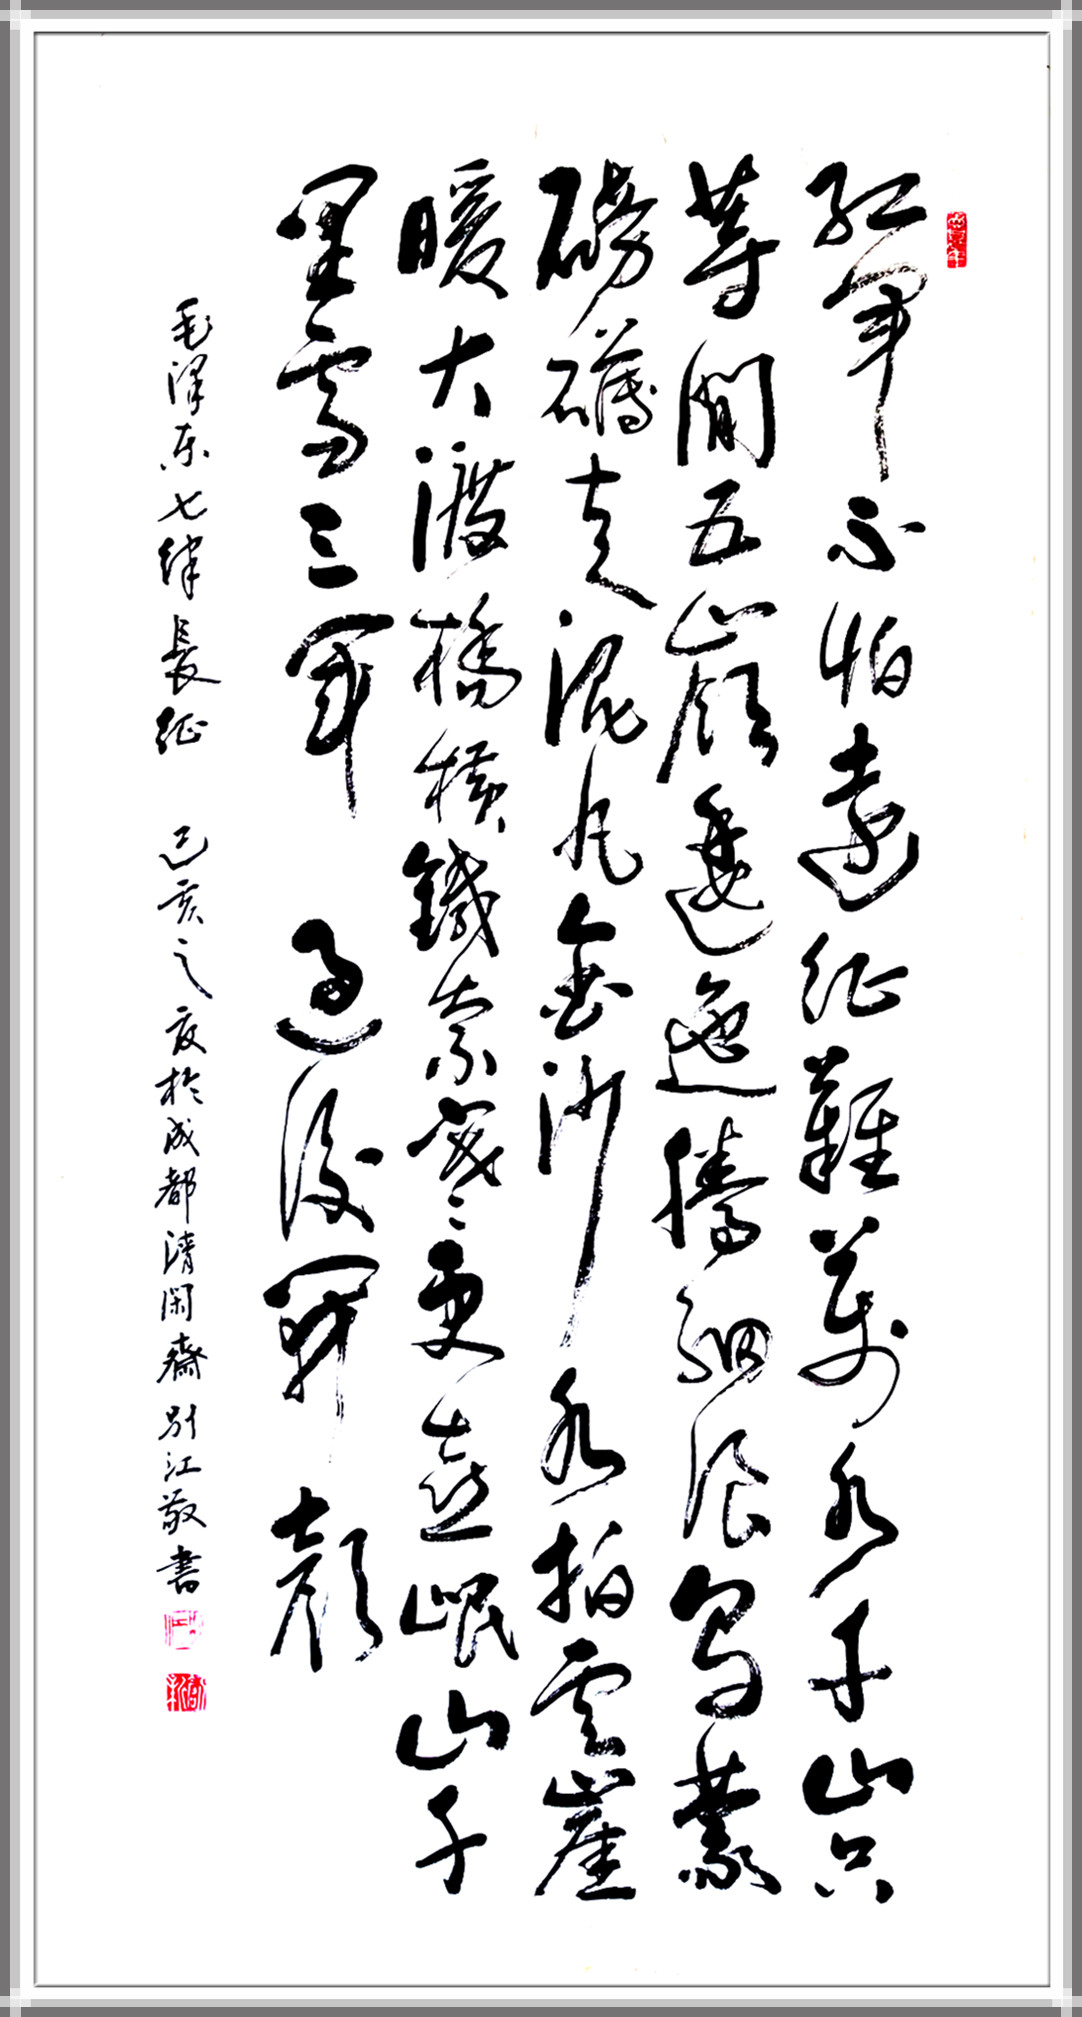 紅軍不怕遠征難萬水千山只
等閒五嶺逶迤騰細浪烏蒙
磅礴走泥丸金沙水拍雲崖
暖大渡橋橫鐵索寒更喜岷山千
里雪三軍過後開顏
毛澤东七律長征 己亥之夏於成都清閑齋別江敬書